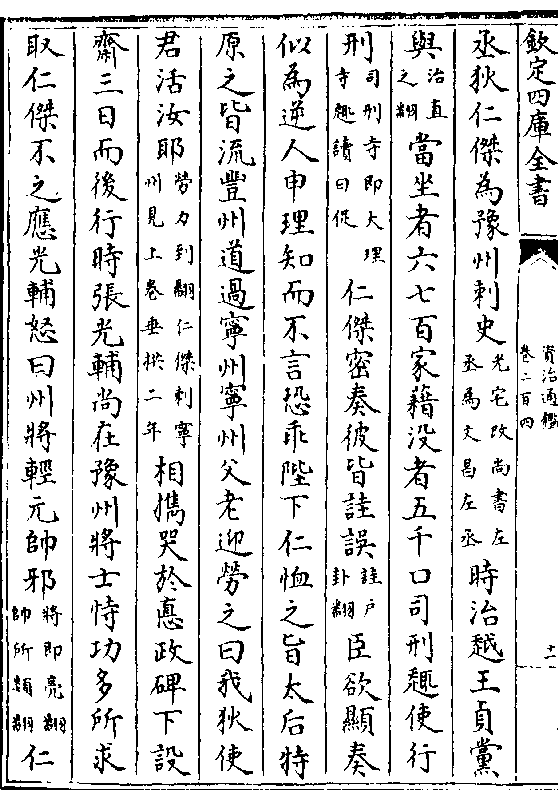 欽定四庫全書
資治通鑑
卷二百四
十一
丞狄仁傑為豫州刺史光宅改尚書左丞為文昌左丞時治越王貞黨
與治直之翻當坐者六七百家藉没者五千口司刑趣使行
刑司刑寺即大理寺趣讀曰促仁傑密奏彼皆詿誤詿戶卦翻臣欲顯奏
似為逆人申理知而不言恐乖陛下仁恤之旨太后特
原之皆流豐州道過寧州寧州父老迎勞之曰我狄使
君活汝耶勞力到翻仁傑刺寧州見上卷垂拱二年相攜哭於悳政碑下設
齋三日而後行時張光輔尚在豫州將士恃功多所求
取仁傑不之應光輔怒曰州將輕元帥邪將即亮翻帥所類翻仁